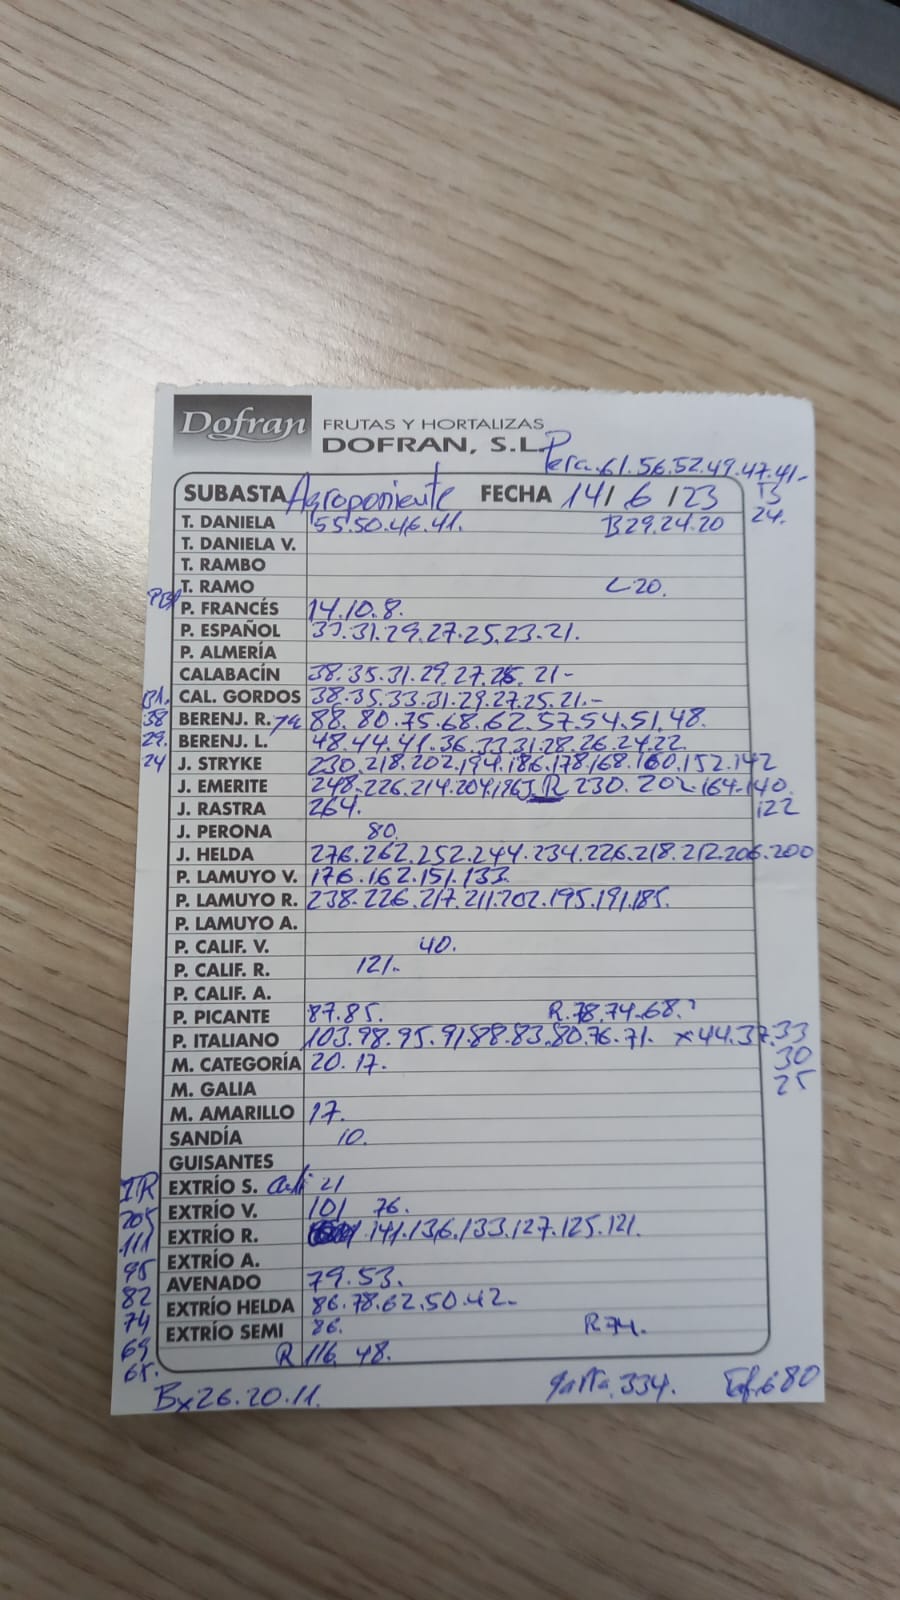 Dofran FRUTAS Y HORTALIZAS
DOFRAN, S.L.
Pera.61.56.52.49.47.41-
SUBASTA Agroponiente FECHA 14/6/23 B
24.
T. DANELA 55.50.46.41. B29.24.20
T. DANIELA V.
T. RAMBO
T. RAMO L20.
P. FRANCÉS 14.10.8.
P. ESPAÑOL 33.31.29.27.25.23.21.
P. ALMERÍA
CALABACÍN 38.35.31.29.27.25.21-
CAL. GORDOS 38.35.33.31.29.27.25.21.-
38 BERENJ. R. 88.80.75.68.62.57.54.51.48.
29. BERENJ. L. 48.44.41.36.33.31.28.26.24.22.
24 J. STRYKE 230.218.202.194.186.178.168.160.152.142
J. EMERITE 248.226.214.204.196 R 230.202.164.140.
J. RASTRA 264. 122
J. PERONA 80.
J. HELDA 276.262.252.244.234.226.218.212.206.200
P. LAMUYO V. 176.162.151.133.
P. LAMUYO R. 238.226.217.211.202.195.191.185.
P. LAMUYO A.
P. CALIF. V. 40.
P. CALIF. R. 121.-
P. CALIF. A.
P. PICANTE 87.85. R.78.74.68.
P. ITALIANO 103.98.95.91.88.83.80.76.71. x44.37.33
M. CATEGORÍA 20.17. 30
M. GALIA 25
M. AMARILLO 17.
SANDÍA 10.
GUISANTES
IR EXTRÍO S. Cali 21
205 EXTRÍO V. 101 76.
111 EXTRÍO R. 141.136.133.127.125.121.
95 EXTRÍO A.
82 AVENADO 79.53.
74 EXTRÍO HELDA 86.78.62.50.42-
69 EXTRÍO SEMI 86. R74.
65. R 116 48.
Bx26.20.11. 334. 680